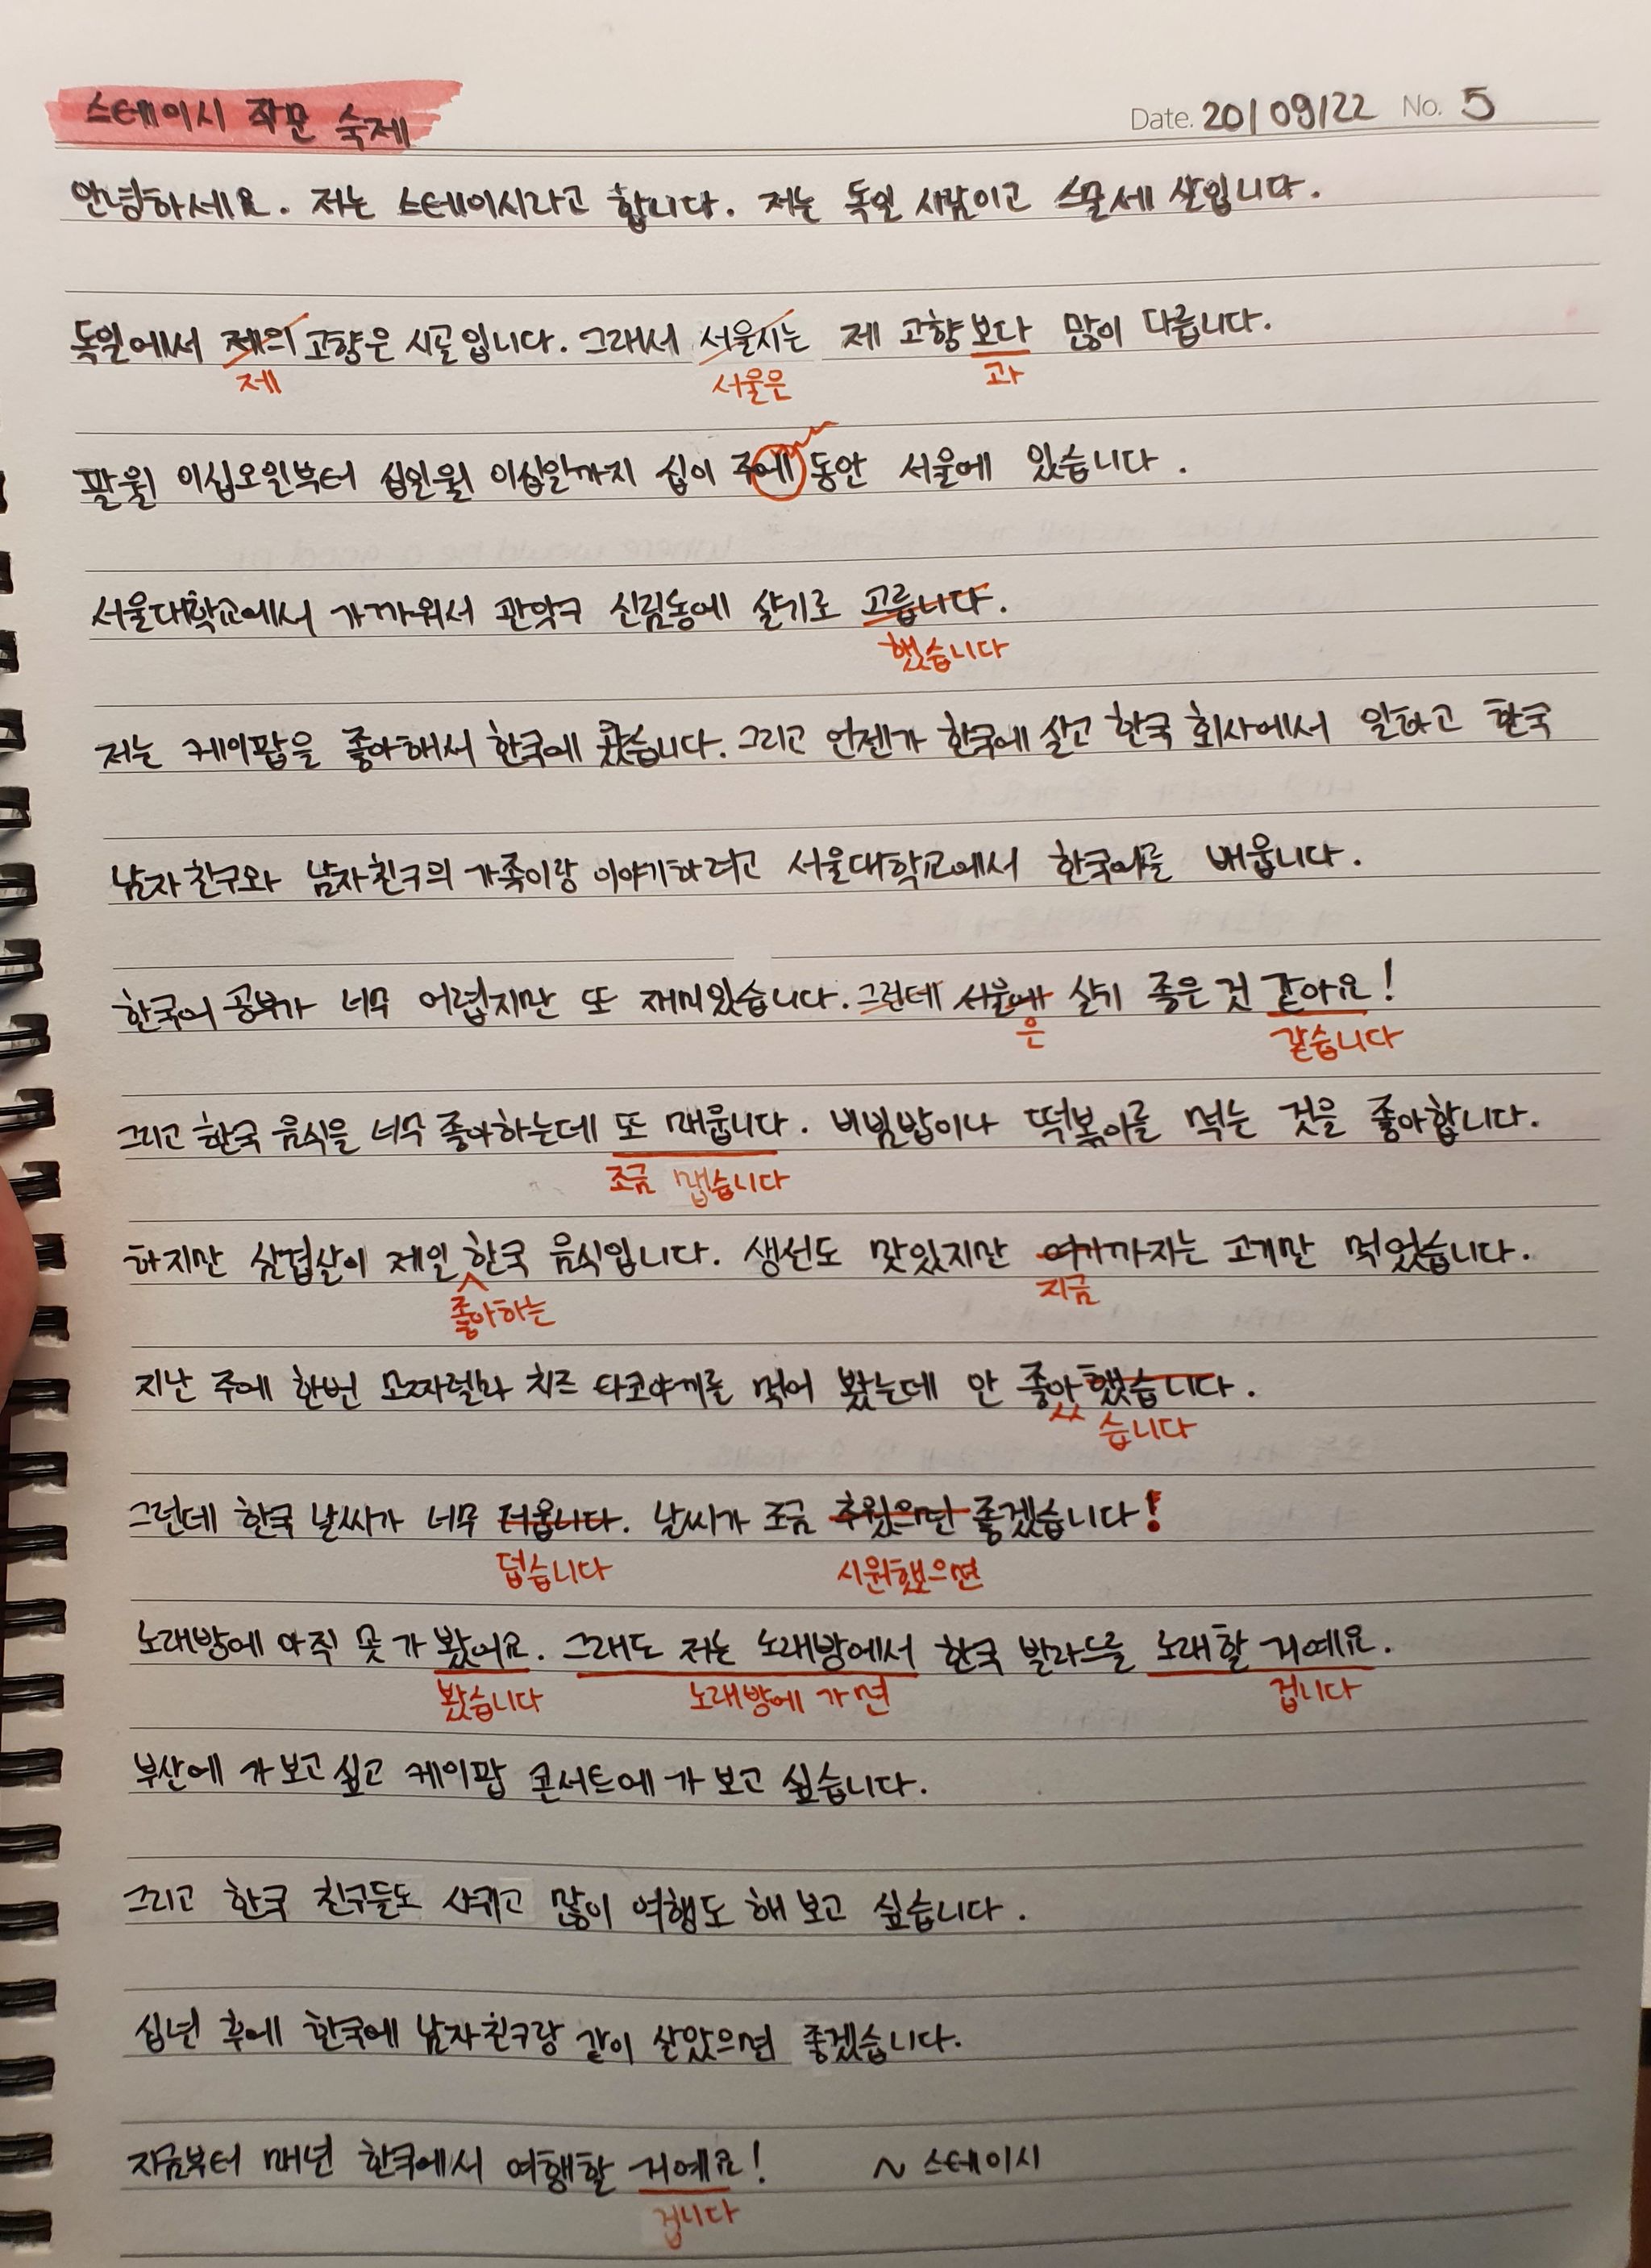 스테이시 작문 숙제
Date. 20/09/22 No. 5
안녕하세요. 저는 스테이시라고 합니다. 저는 독일 사람이고 스물세 살입니다.
독일에서 제의 고향은 시골입니다. 그래서 서울시는 제 고향보다 많이 다릅니다.
제 서울은 과
팔월 이십오일부터 십일월 이십일까지 십이 주에 동안 서울에 있습니다.
서울대학교에서 가까워서 관악구 신림동에 살기로 고릅니다.
했습니다
저는 케이팝을 좋아해서 한국에 왔습니다. 그리고 언젠가 한국에 살고 한국 회사에서 일하고 한국
남자친구와 남자친구의 가족이랑 이야기하려고 서울대학교에서 한국어를 배웁니다.
한국어 공부가 너무 어렵지만 또 재미있습니다. 그런데 서울에 살기 좋은 것 같아요!
은 같습니다
그리고 한국 음식을 너무 좋아하는데 또 매웁니다. 비빔밥이나 떡볶이를 먹는 것을 좋아합니다.
조금 맵습니다
하지만 삼겹살이 제일 한국 음식입니다. 생선도 맛있지만 여기까지는 고기만 먹었습니다.
좋아하는 지금
지난 주에 한번 모짜렐라 치즈 타코야끼를 먹어 봤는데 안 좋아했습니다.
ㅆ습니다
그런데 한국 날씨가 너무 더웁니다. 날씨가 조금 추웠으면 좋겠습니다!
덥습니다 시원했으면
노래방에 아직 못 가 봤어요. 그래도 저는 노래방에서 한국 발라드를 노래할 거예요.
봤습니다 노래방에 가면 겁니다
부산에 가 보고 싶고 케이팝 콘서트에 가 보고 싶습니다.
그리고 한국 친구들도 사귀고 많이 여행도 해 보고 싶습니다.
십년 후에 한국에 남자친구랑 같이 살았으면 좋겠습니다.
지금부터 매년 한국에서 여행할 거예요! ~ 스테이시
겁니다